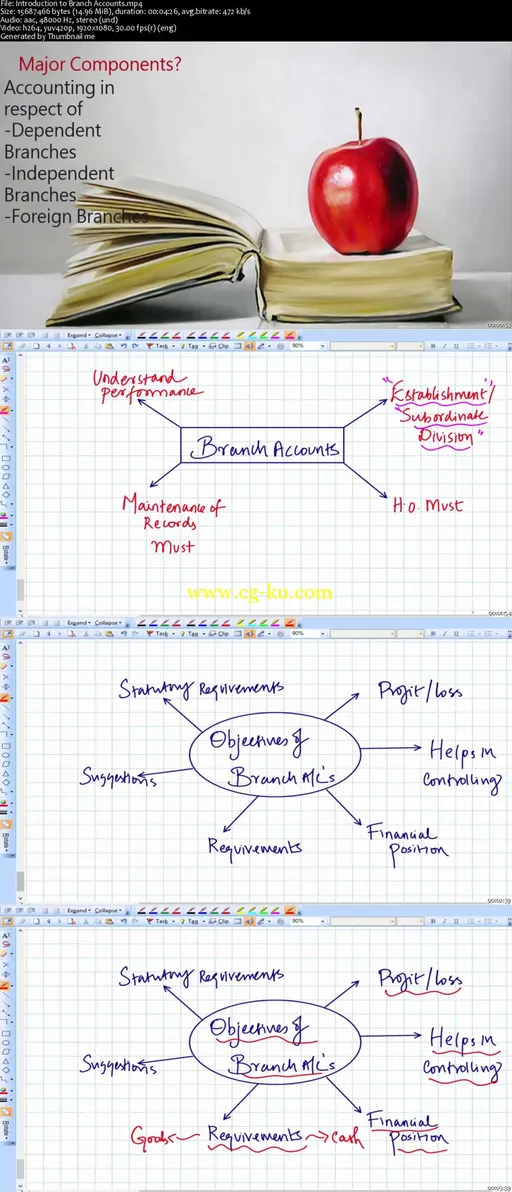 File: Introduction to Branch Accounts.mp4
Size: 15687466 bytes (14.96 MiB), duration: 00:04:26, avg.bitrate: 472 kb/s
Audio: aac, 48000 Hz, stereo (und)
Video: h264, yuv420p, 1920x1080, 30.00 fps(r) (eng)
Generated by Thumbnail me
Major Components?
Accounting in
respect of
-Dependent
Branches
-Independent
Branches
-Foreign Branches
00:00:53
Expand Collapse
Task Tag Clip 90%
Understand
performance
"Establishment"/
"Subordinate
Division"
Branch Accounts
Maintenance of
Records
Must
H.O. Must
www.cg-ku.com
Expand Collapse
Task Tag Clip 90%
Statutory Requirements
Profit/Loss
Objectives of
Branch A/c's
Helps in
Controlling
Suggestions
Requirements
Financial
Position
Expand Collapse
Task Tag Clip 90%
Statutory Requirements
Profit/Loss
Objectives of
Branch A/c's
Helps in
Controlling
Suggestions
Goods Requirements Cash
Financial
Position